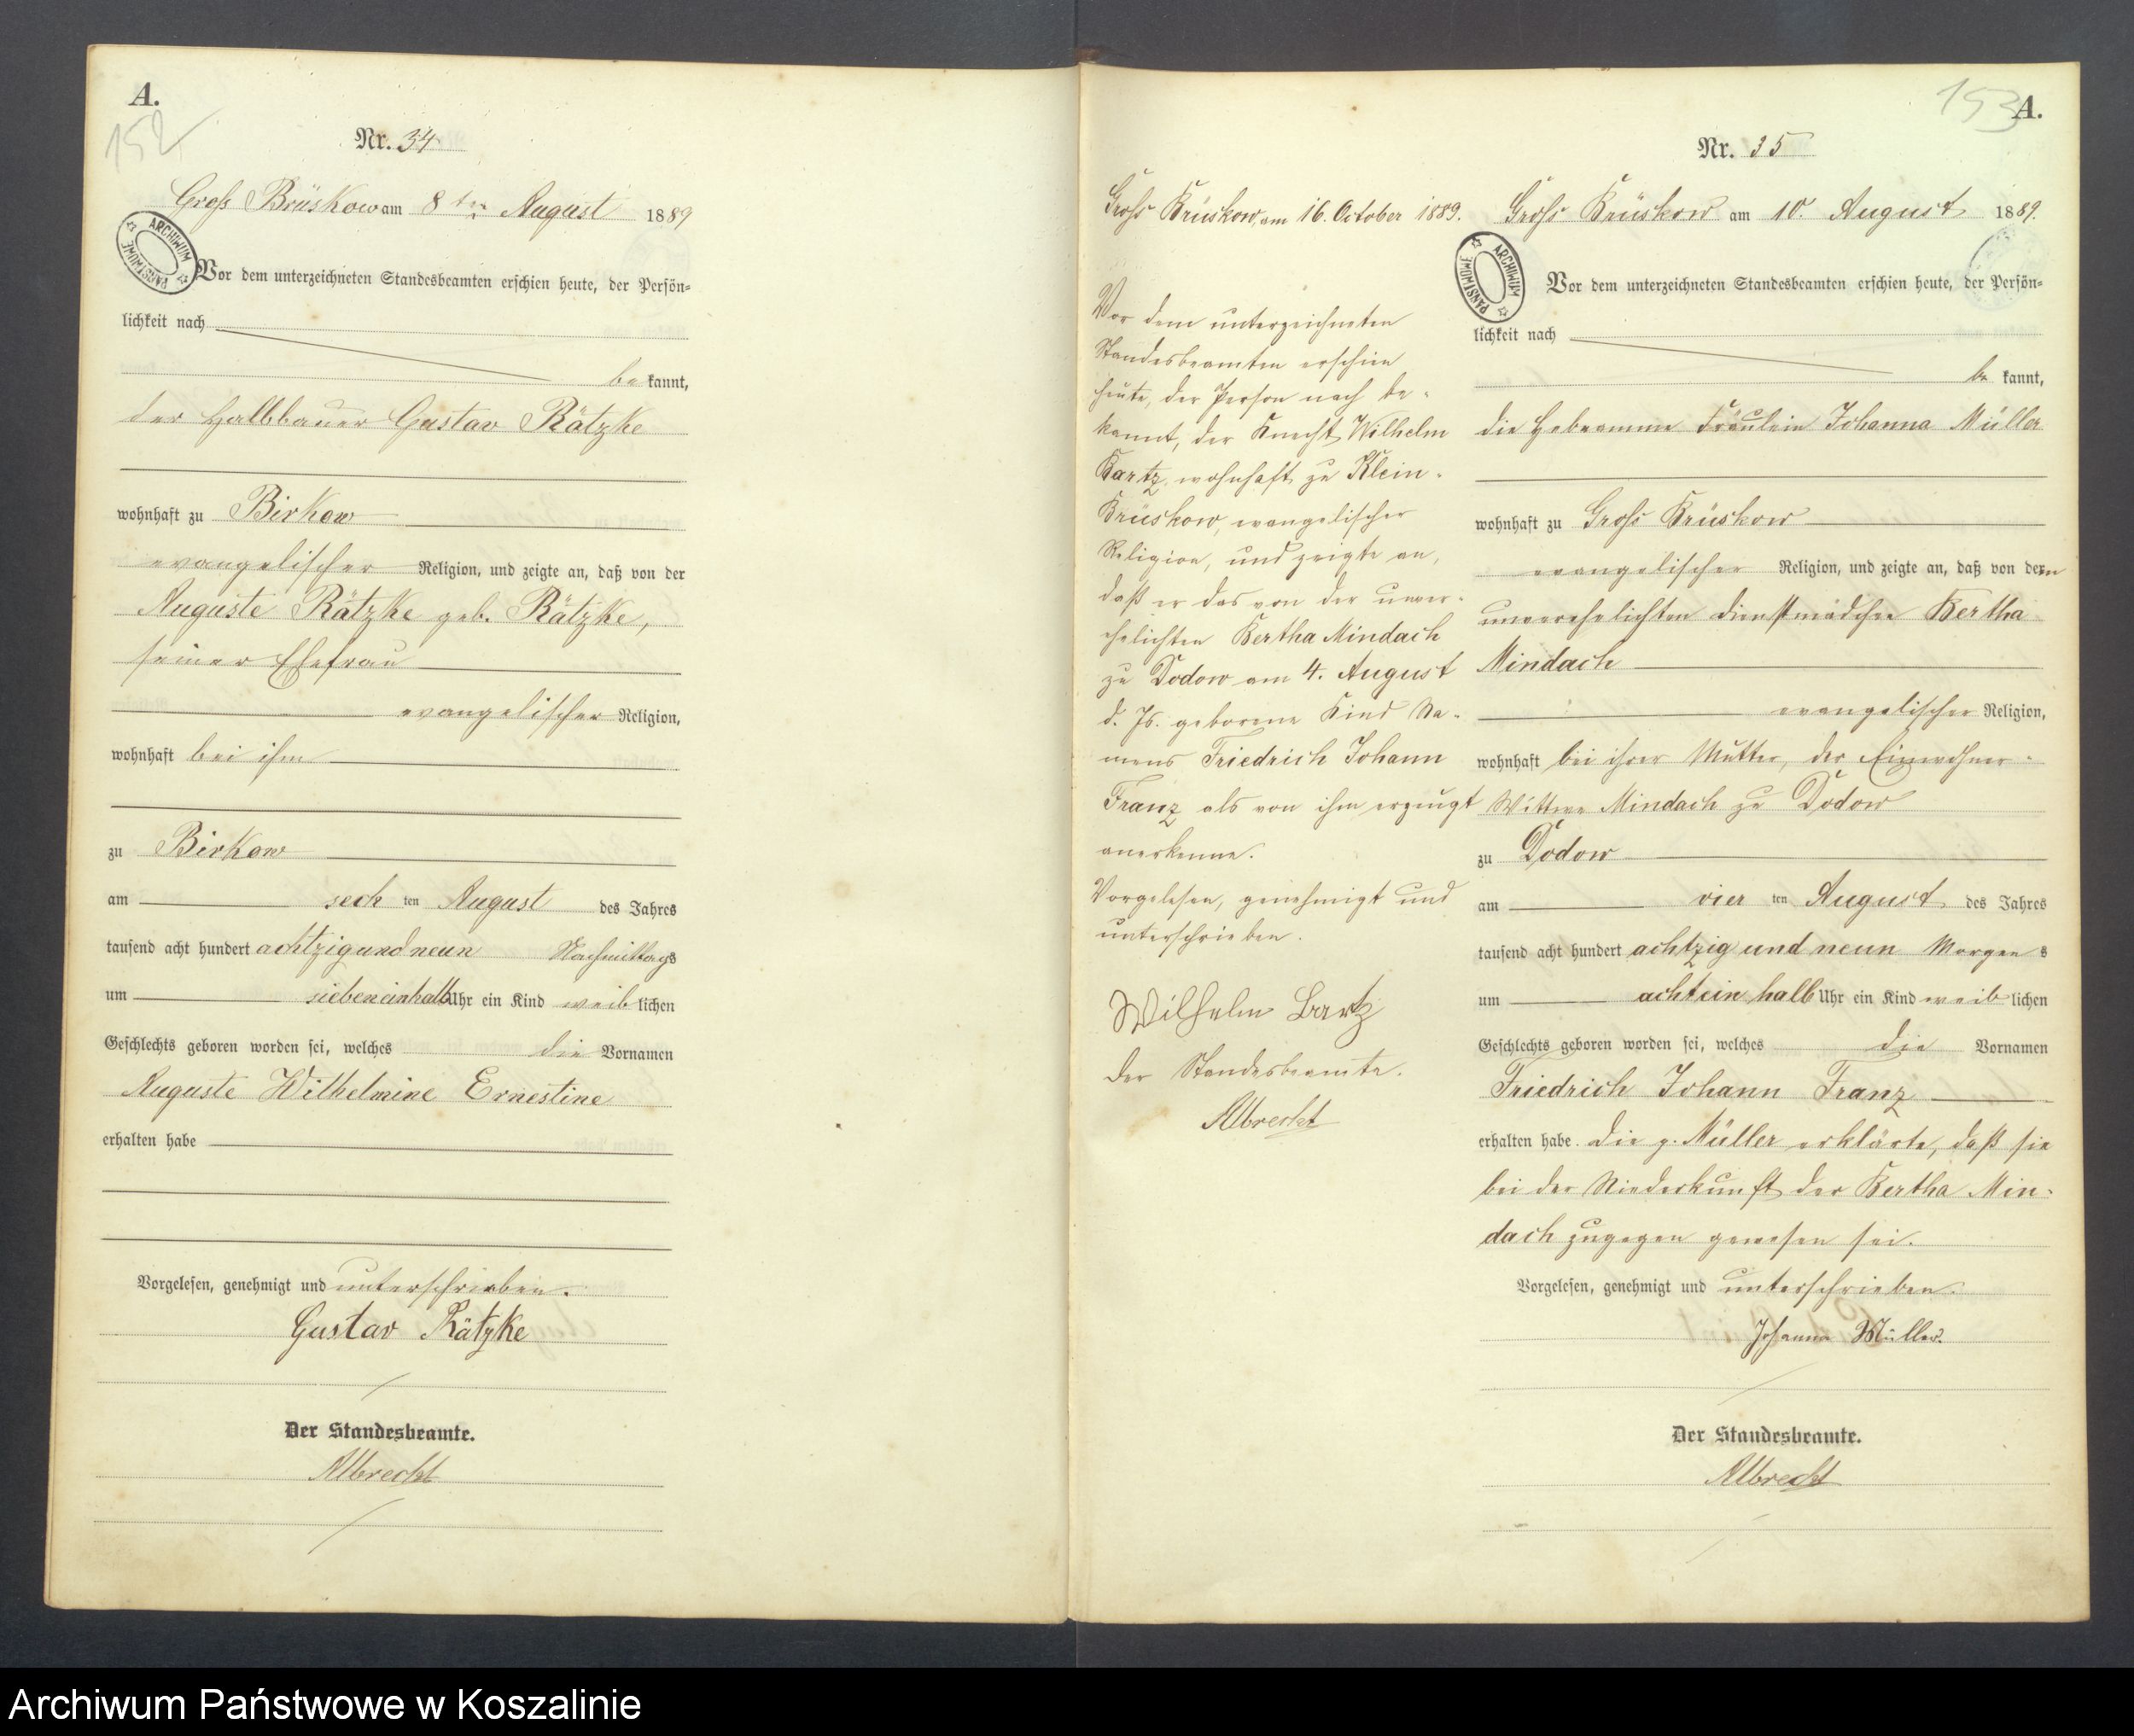 A.
152
Nr. 34
Groß Brüskow am 8ten August 1889
ARCHIWUM PAŃSTWOWE
Vor dem unterzeichneten Standesbeamten erschien heute, der Persön-
lichkeit nach
be kannt,
der Halbbauer Gustav Rätzke
wohnhaft zu Birkow
evangelischer Religion, und zeigte an, daß von der
Auguste Rätzke geb. Rätzke,
seiner Ehefrau
evangelischer Religion,
wohnhaft bei ihm
zu Birkow
am sech ten August des Jahres
tausend acht hundert achtzig und neun Nachmittags
um siebeneinhalb Uhr ein Kind weib lichen
Geschlechts geboren worden sei, welches die Vornamen
Auguste Wilhelmine Ernestine
erhalten habe
Vorgelesen, genehmigt und unterschrieben.
Gustav Rätzke
Der Standesbeamte.
Albrecht
Groß Brüskow, am 16. October 1889.
Vor dem unterzeichneten
Standesbeamten erschien
heute, der Person nach be-
kannt, der Knecht Wilhelm
Bartz wohnhaft zu Klein-
Brüskow, evangelischer
Religion, und zeigte an,
daß er das von der unver-
ehelichten Bertha Mindach
zu Dodow am 4. August
d. Js. geborene Kind Na-
mens Friedrich Johann
Franz als von ihm erzeugt
anerkenne.
Vorgelesen, genehmigt und
unterschrieben.
Wilhelm Bartz
Der Standesbeamte.
Albrecht
153
A.
Nr. 35
Groß Brüskow am 10. August 1889.
ARCHIWUM PAŃSTWOWE
Vor dem unterzeichneten Standesbeamten erschien heute, der Persön-
lichkeit nach
be kannt,
die Hebeamme Fräulein Johanna Müller
wohnhaft zu Groß Brüskow
evangelischer Religion, und zeigte an, daß von dem
unverehelichten Dienstmädchen Bertha
Mindach
evangelischer Religion,
wohnhaft bei ihrer Mutter, der Einwohner-
Wittwe Mindach zu Dodow
zu Dodow
am vier ten August des Jahres
tausend acht hundert achtzig und neun Morgen s
um achtein halb Uhr ein Kind weib lichen
Geschlechts geboren worden sei, welches die Vornamen
Friedrich Johann Franz
erhalten habe. Die p. Müller erklärte, daß sie
bei der Niederkunft der Bertha Min-
dach zugegen gewesen sei.
Vorgelesen, genehmigt und unterschrieben.
Johanna Müller.
Der Standesbeamte.
Albrecht
Archiwum Państwowe w Koszalinie